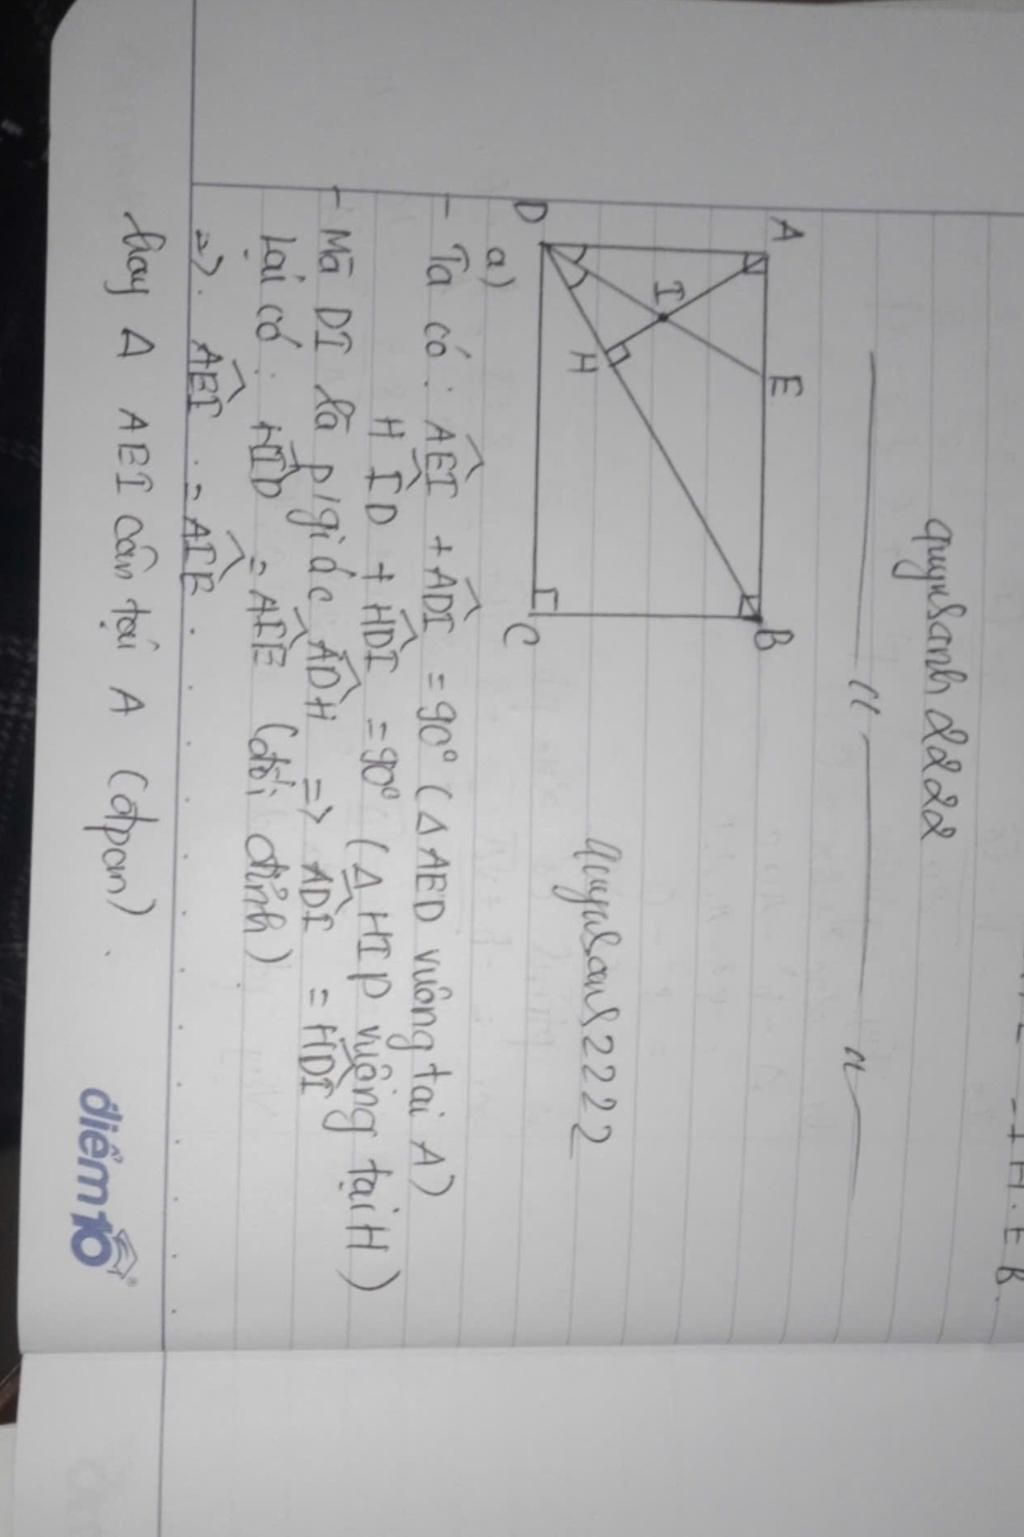 quynhanh2222
A E B
I
H
D C
quynhanh2222
a)
- Ta có: AEI + ADI = 90° (Δ AED vuông tại A)
HID + HDI = 90° (Δ HID vuông tại H)
- Mà DI là p/giác ADH => ADI = HDI
Lại có: HID = AIE (đối đỉnh)
=> AEI = AIE
hay Δ AEI cân tại A (đpcm)
điểm 10